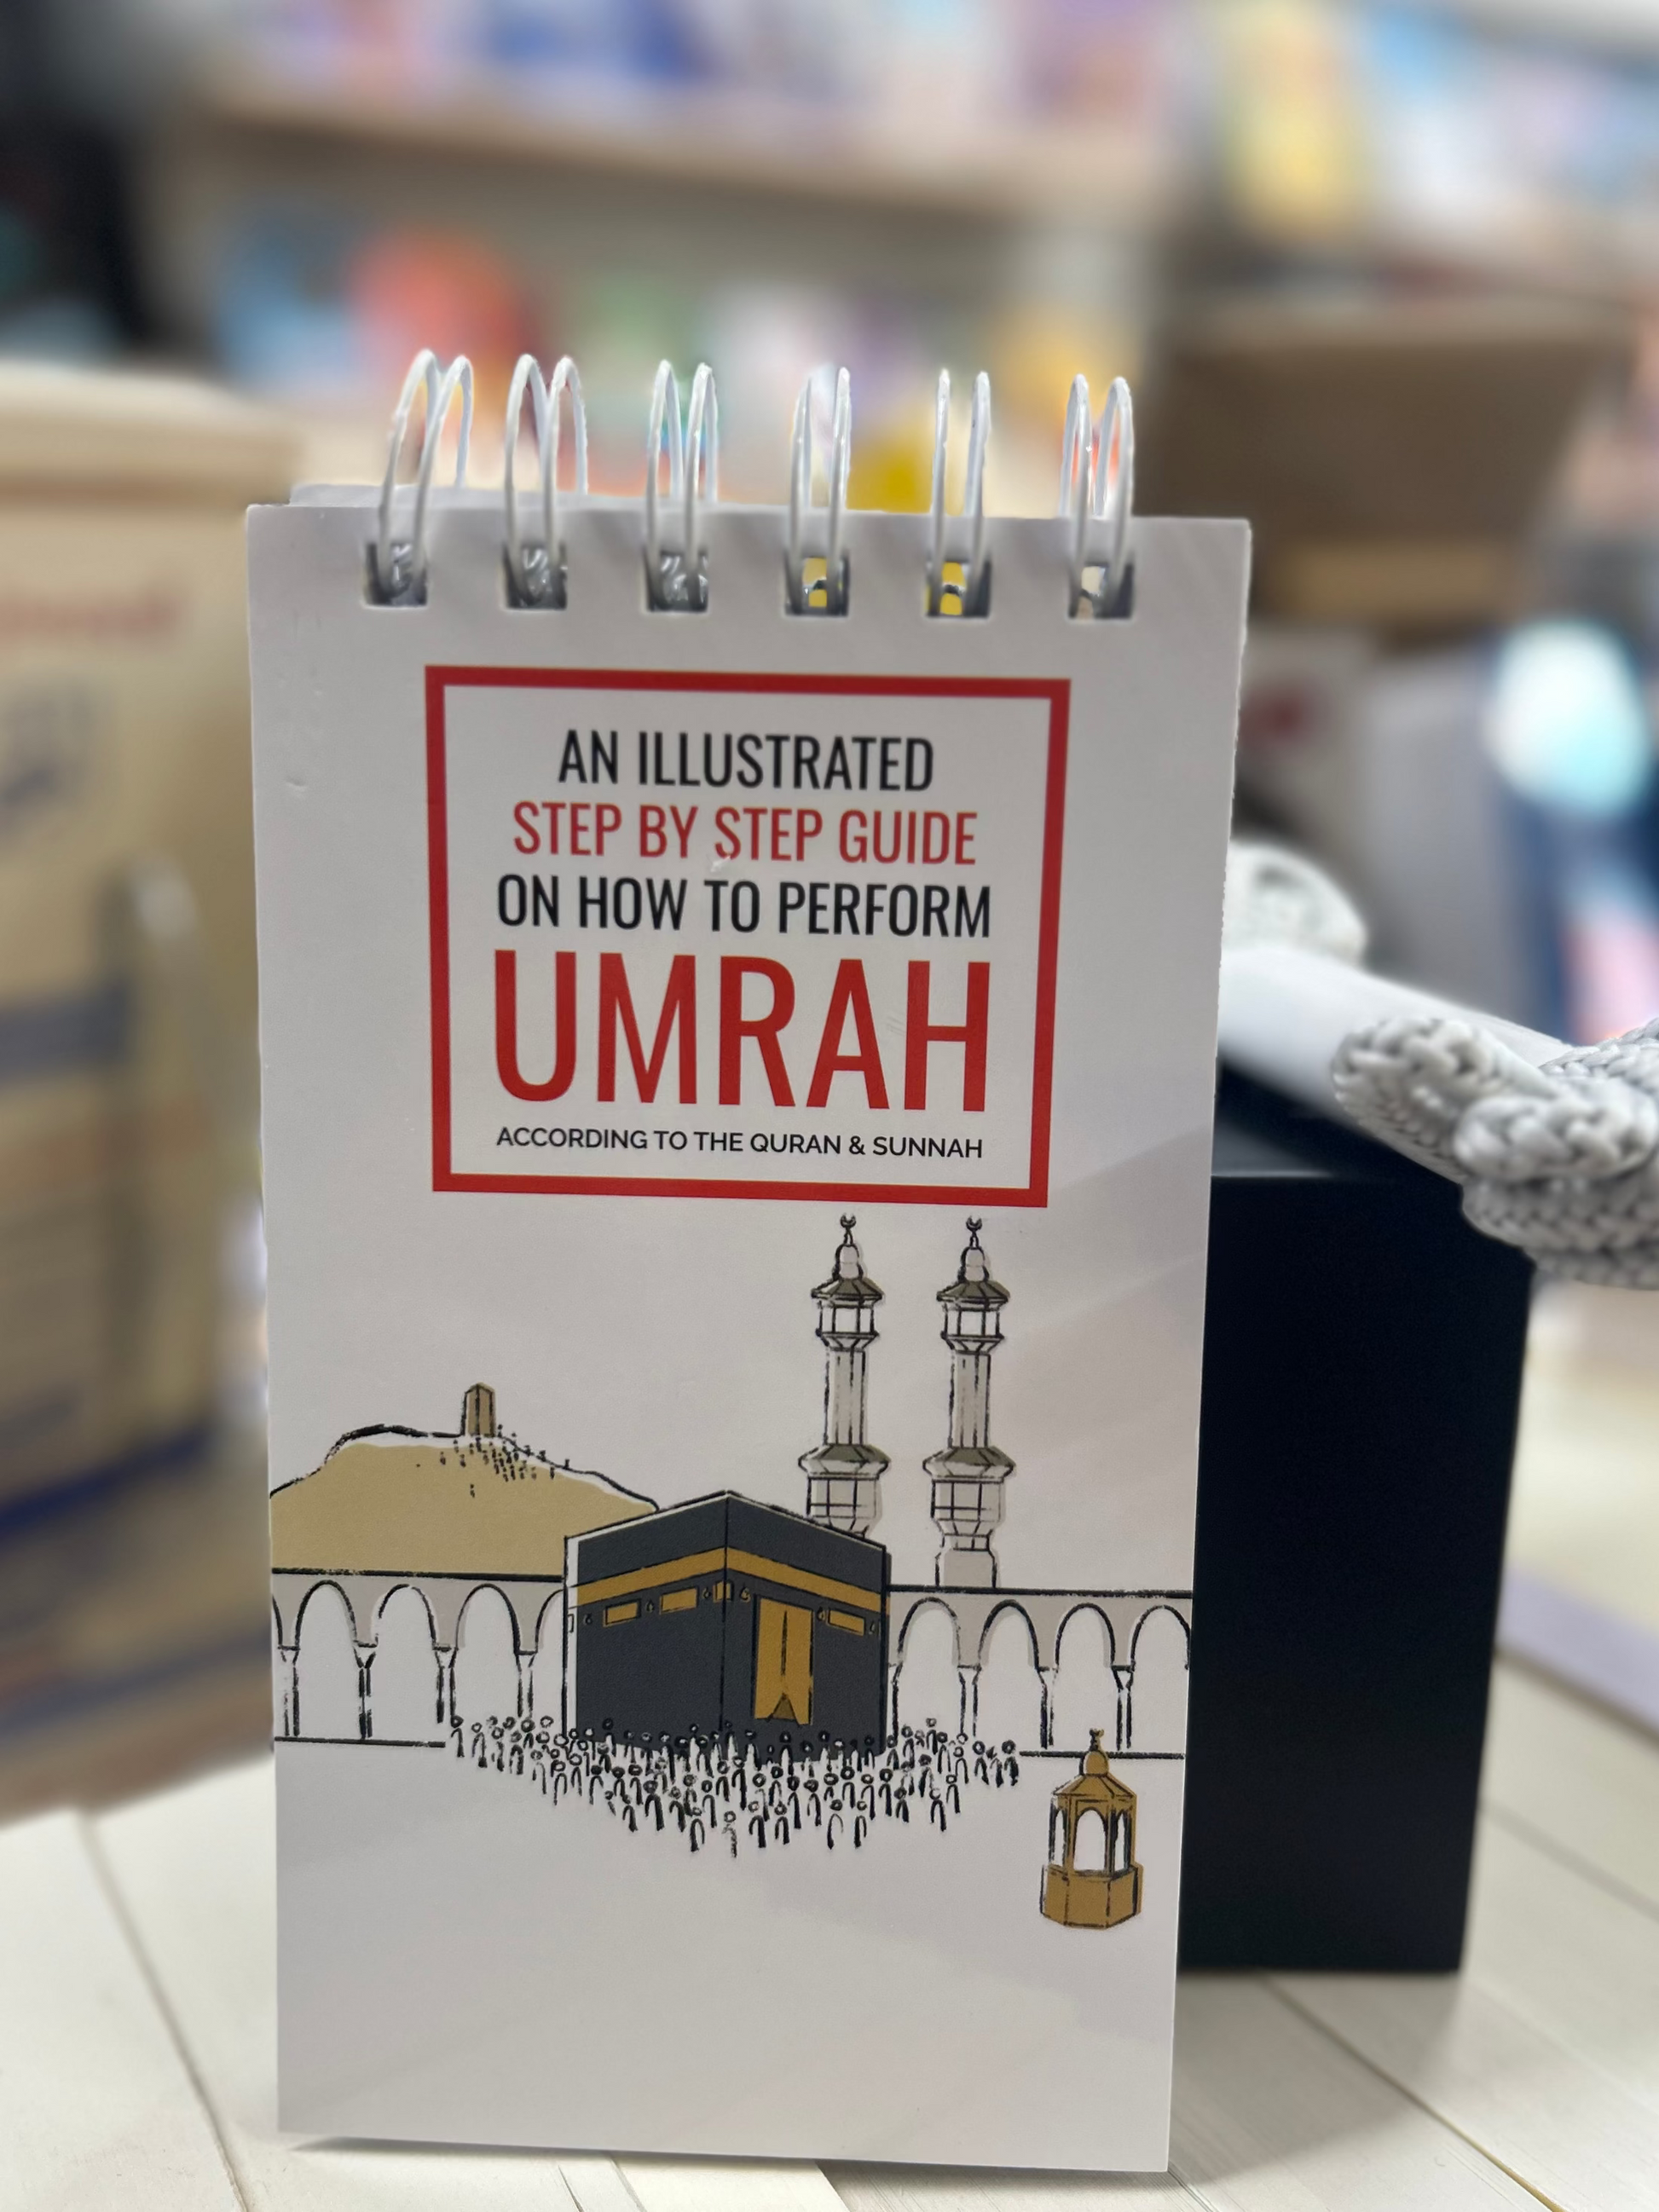 AN ILLUSTRATED
STEP BY STEP GUIDE
ON HOW TO PERFORM
UMRAH
ACCORDING TO THE QURAN & SUNNAH